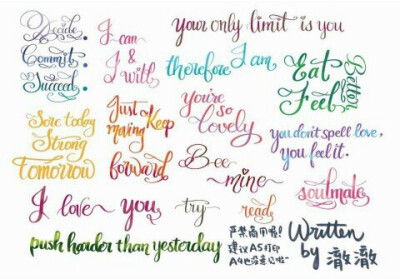 Decide.
Commit.
Succeed.
I can
&
I will!
your only limit is you
therefore I am
Eat
Better
Feel
Better
Sore today
Strong
Tomorrow
Just Keep
moving
forward
you're
so
lovely
Bee
mine
you don't spell love,
you feel it.
soulmate
I love you
try
read
push harder than yesterday
严禁商用喔!
建议A5打印
A4也没差啦~
Written
by 澈澈